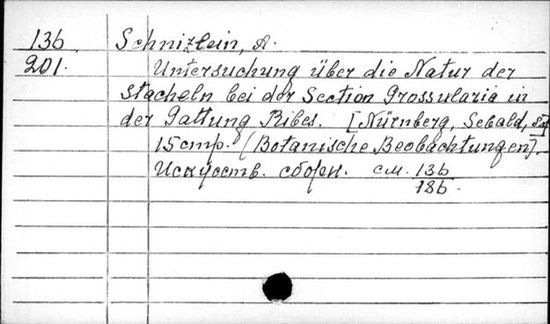 136 Schnizlein, A.
201. Untersuchung über die Natur der
Stacheln bei der Section Grossularia in
der Gattung Ribes. [Nürnberg, Sebald,
15 стр. (Botanische Beobachtungen).
Искусств. сборн. см. 136
186.